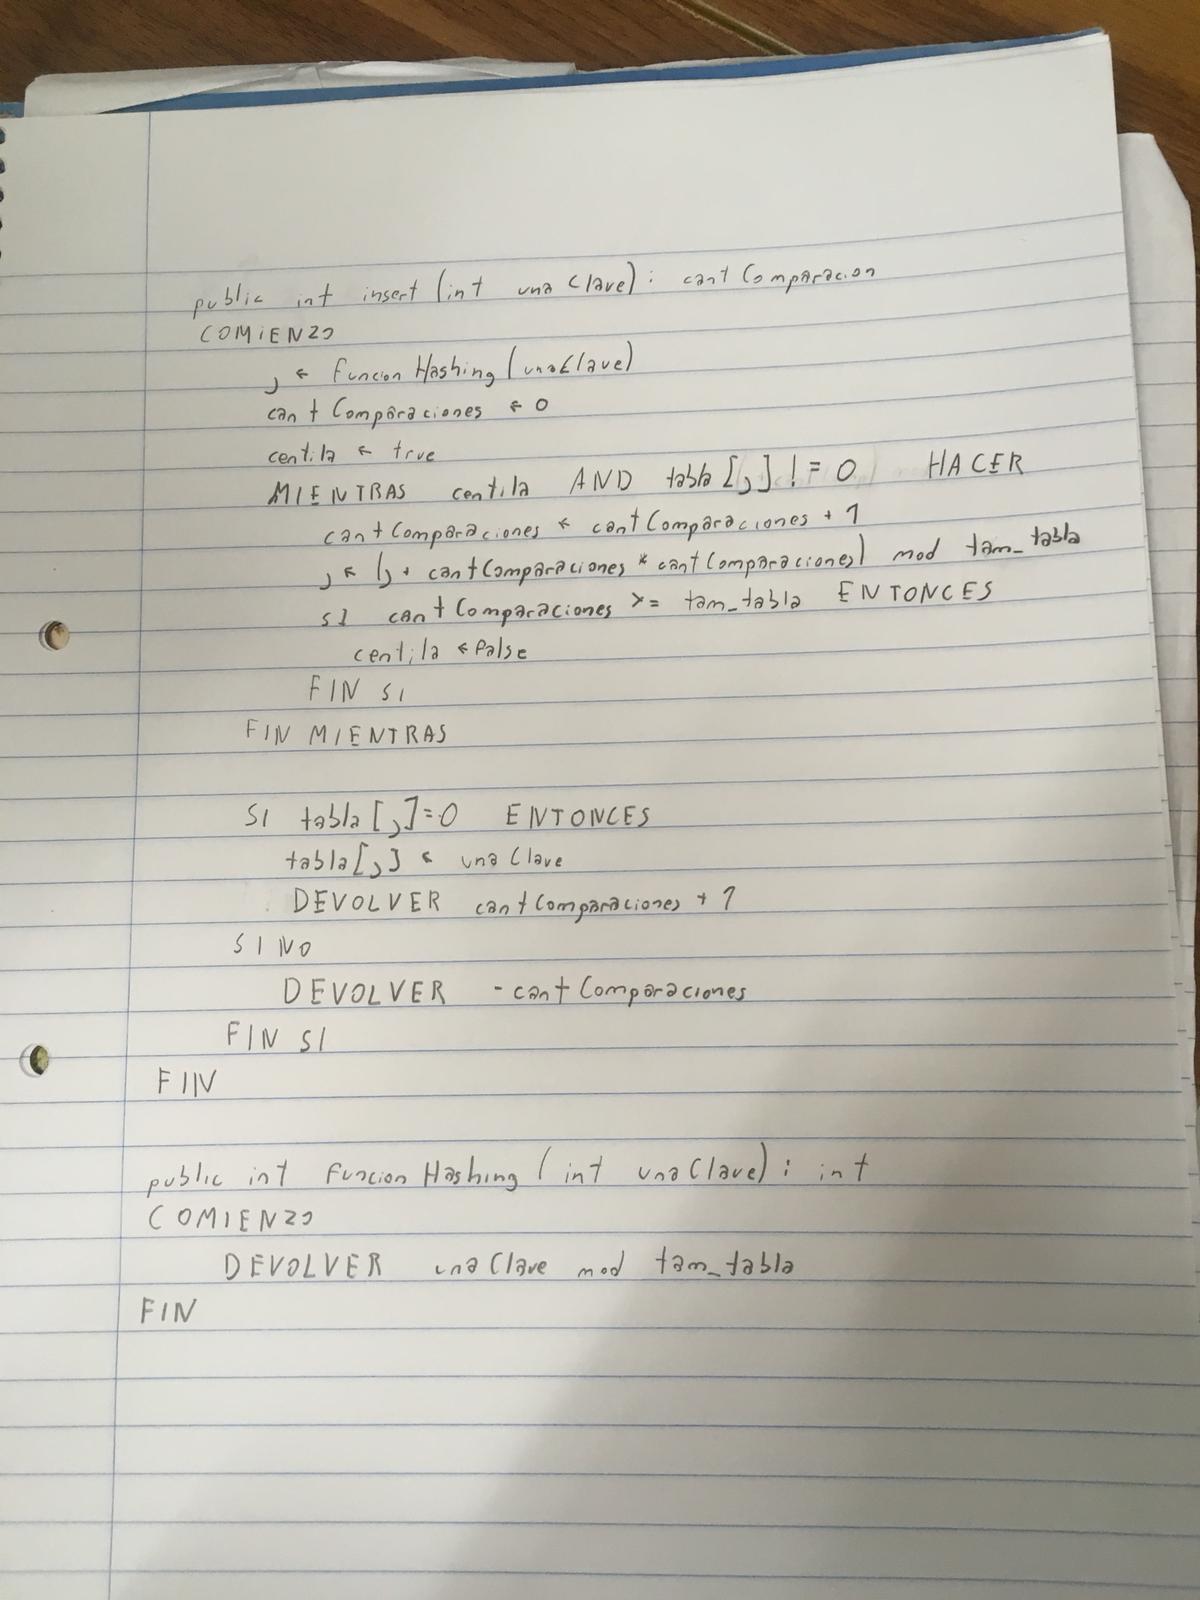 public int insert (int una Clave) : cant Comparacion
COMIENZO
j ← Funcion Hashing (unaClave)
cant Comparaciones ← 0
centila ← true
MIENTRAS centila AND tabla [j] != 0 HACER
cantComparaciones ← cantComparaciones + 1
j ← (j + cantComparaciones * cantComparaciones) mod tam_tabla
SI cantComparaciones >= tam_tabla ENTONCES
centila ← false
FIN SI
FIN MIENTRAS
SI tabla [j]=0 ENTONCES
tabla[j] ← una Clave
DEVOLVER cantComparaciones + 1
SINO
DEVOLVER - cantComparaciones
FIN SI
FIN
public int Funcion Hashing (int unaClave) : int
COMIENZO
DEVOLVER unaClave mod tam_tabla
FIN